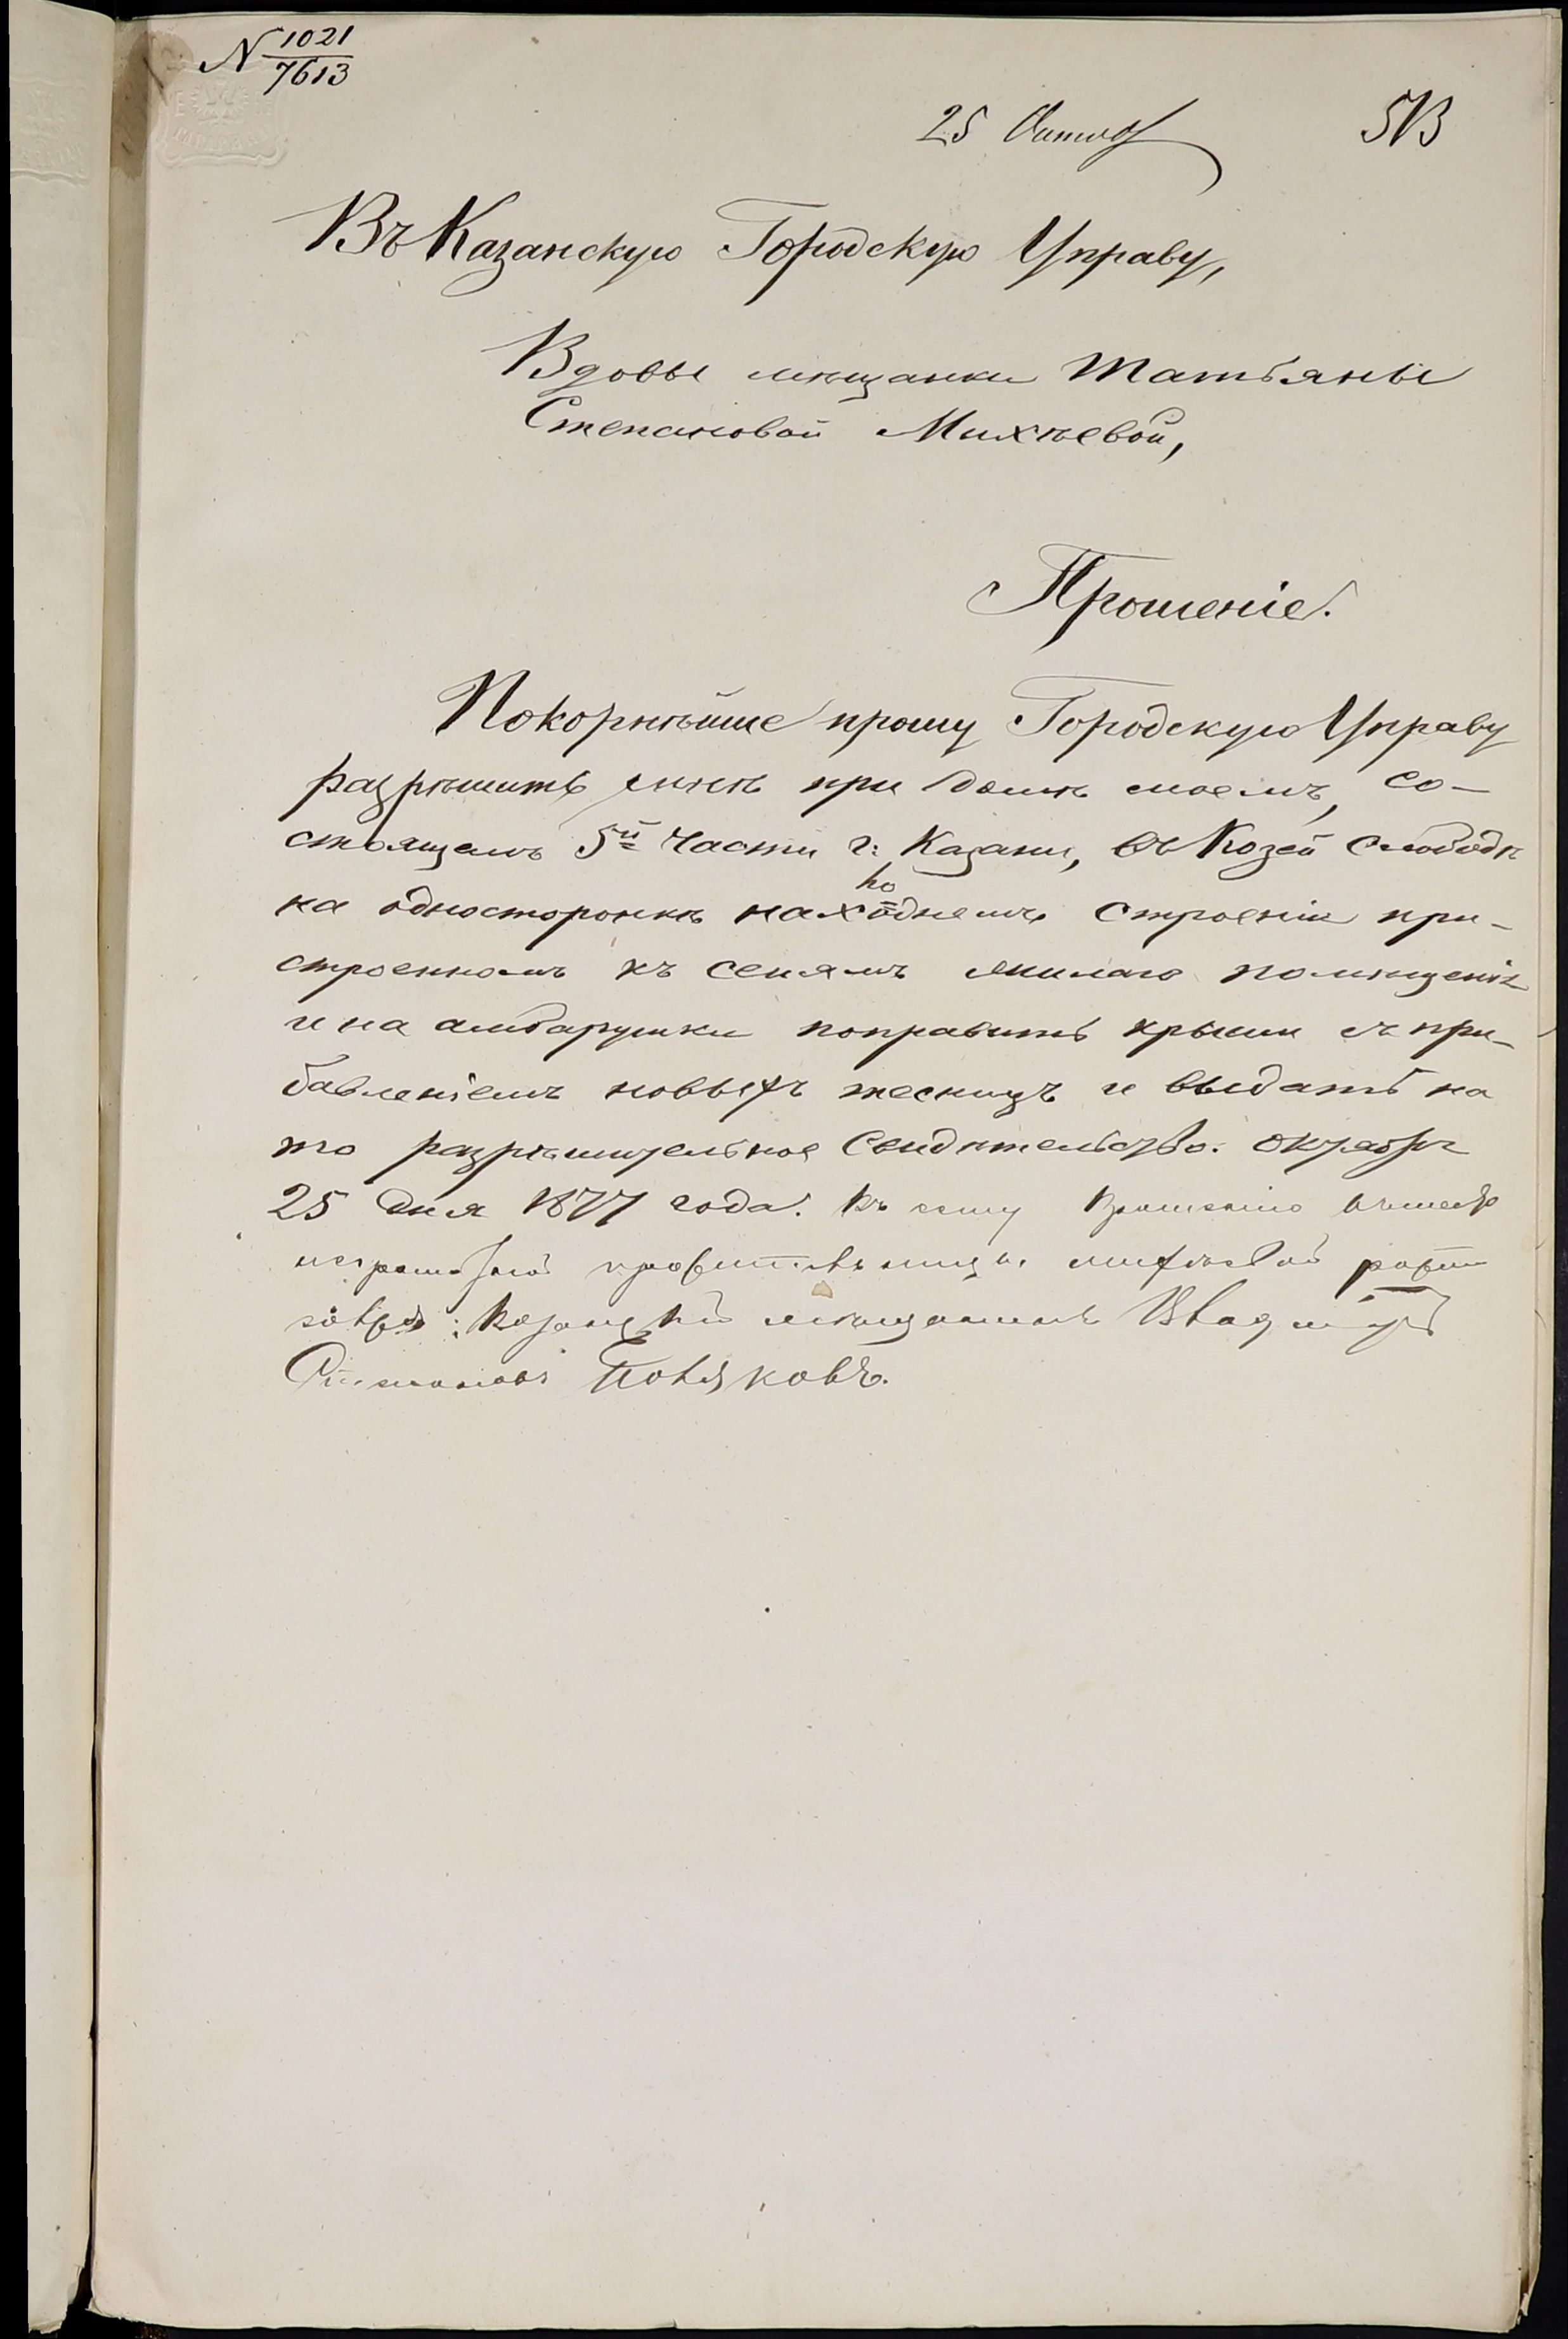 N 1021/7613
25 Октяб 513
Въ Казанскую Городскую Управу,
Вдовы мѣщанки Татьяны
Степановой Михѣевой,
Прошеніе.
Покорнѣйше прошу Городскую Управу
разрѣшить мнѣ при домѣ моемъ, со-
стоящемъ 5й части г: Казани, въ Козей Слободѣ
на односторонкѣ находнемъ строеніи при-
строенномъ къ сенямъ жилаго помѣщенія
и на амбарушки поправить крыши съ при-
бавленіемъ новыхъ тесницъ и выдать на
то разрѣшительное Свидѣтельство. Октября
25 дня 1877 года. Къ сему прошенію вместо
неграмотной просительницы михѣевой
Казанскій мѣщанинъ Владимиръ
Поляковъ.